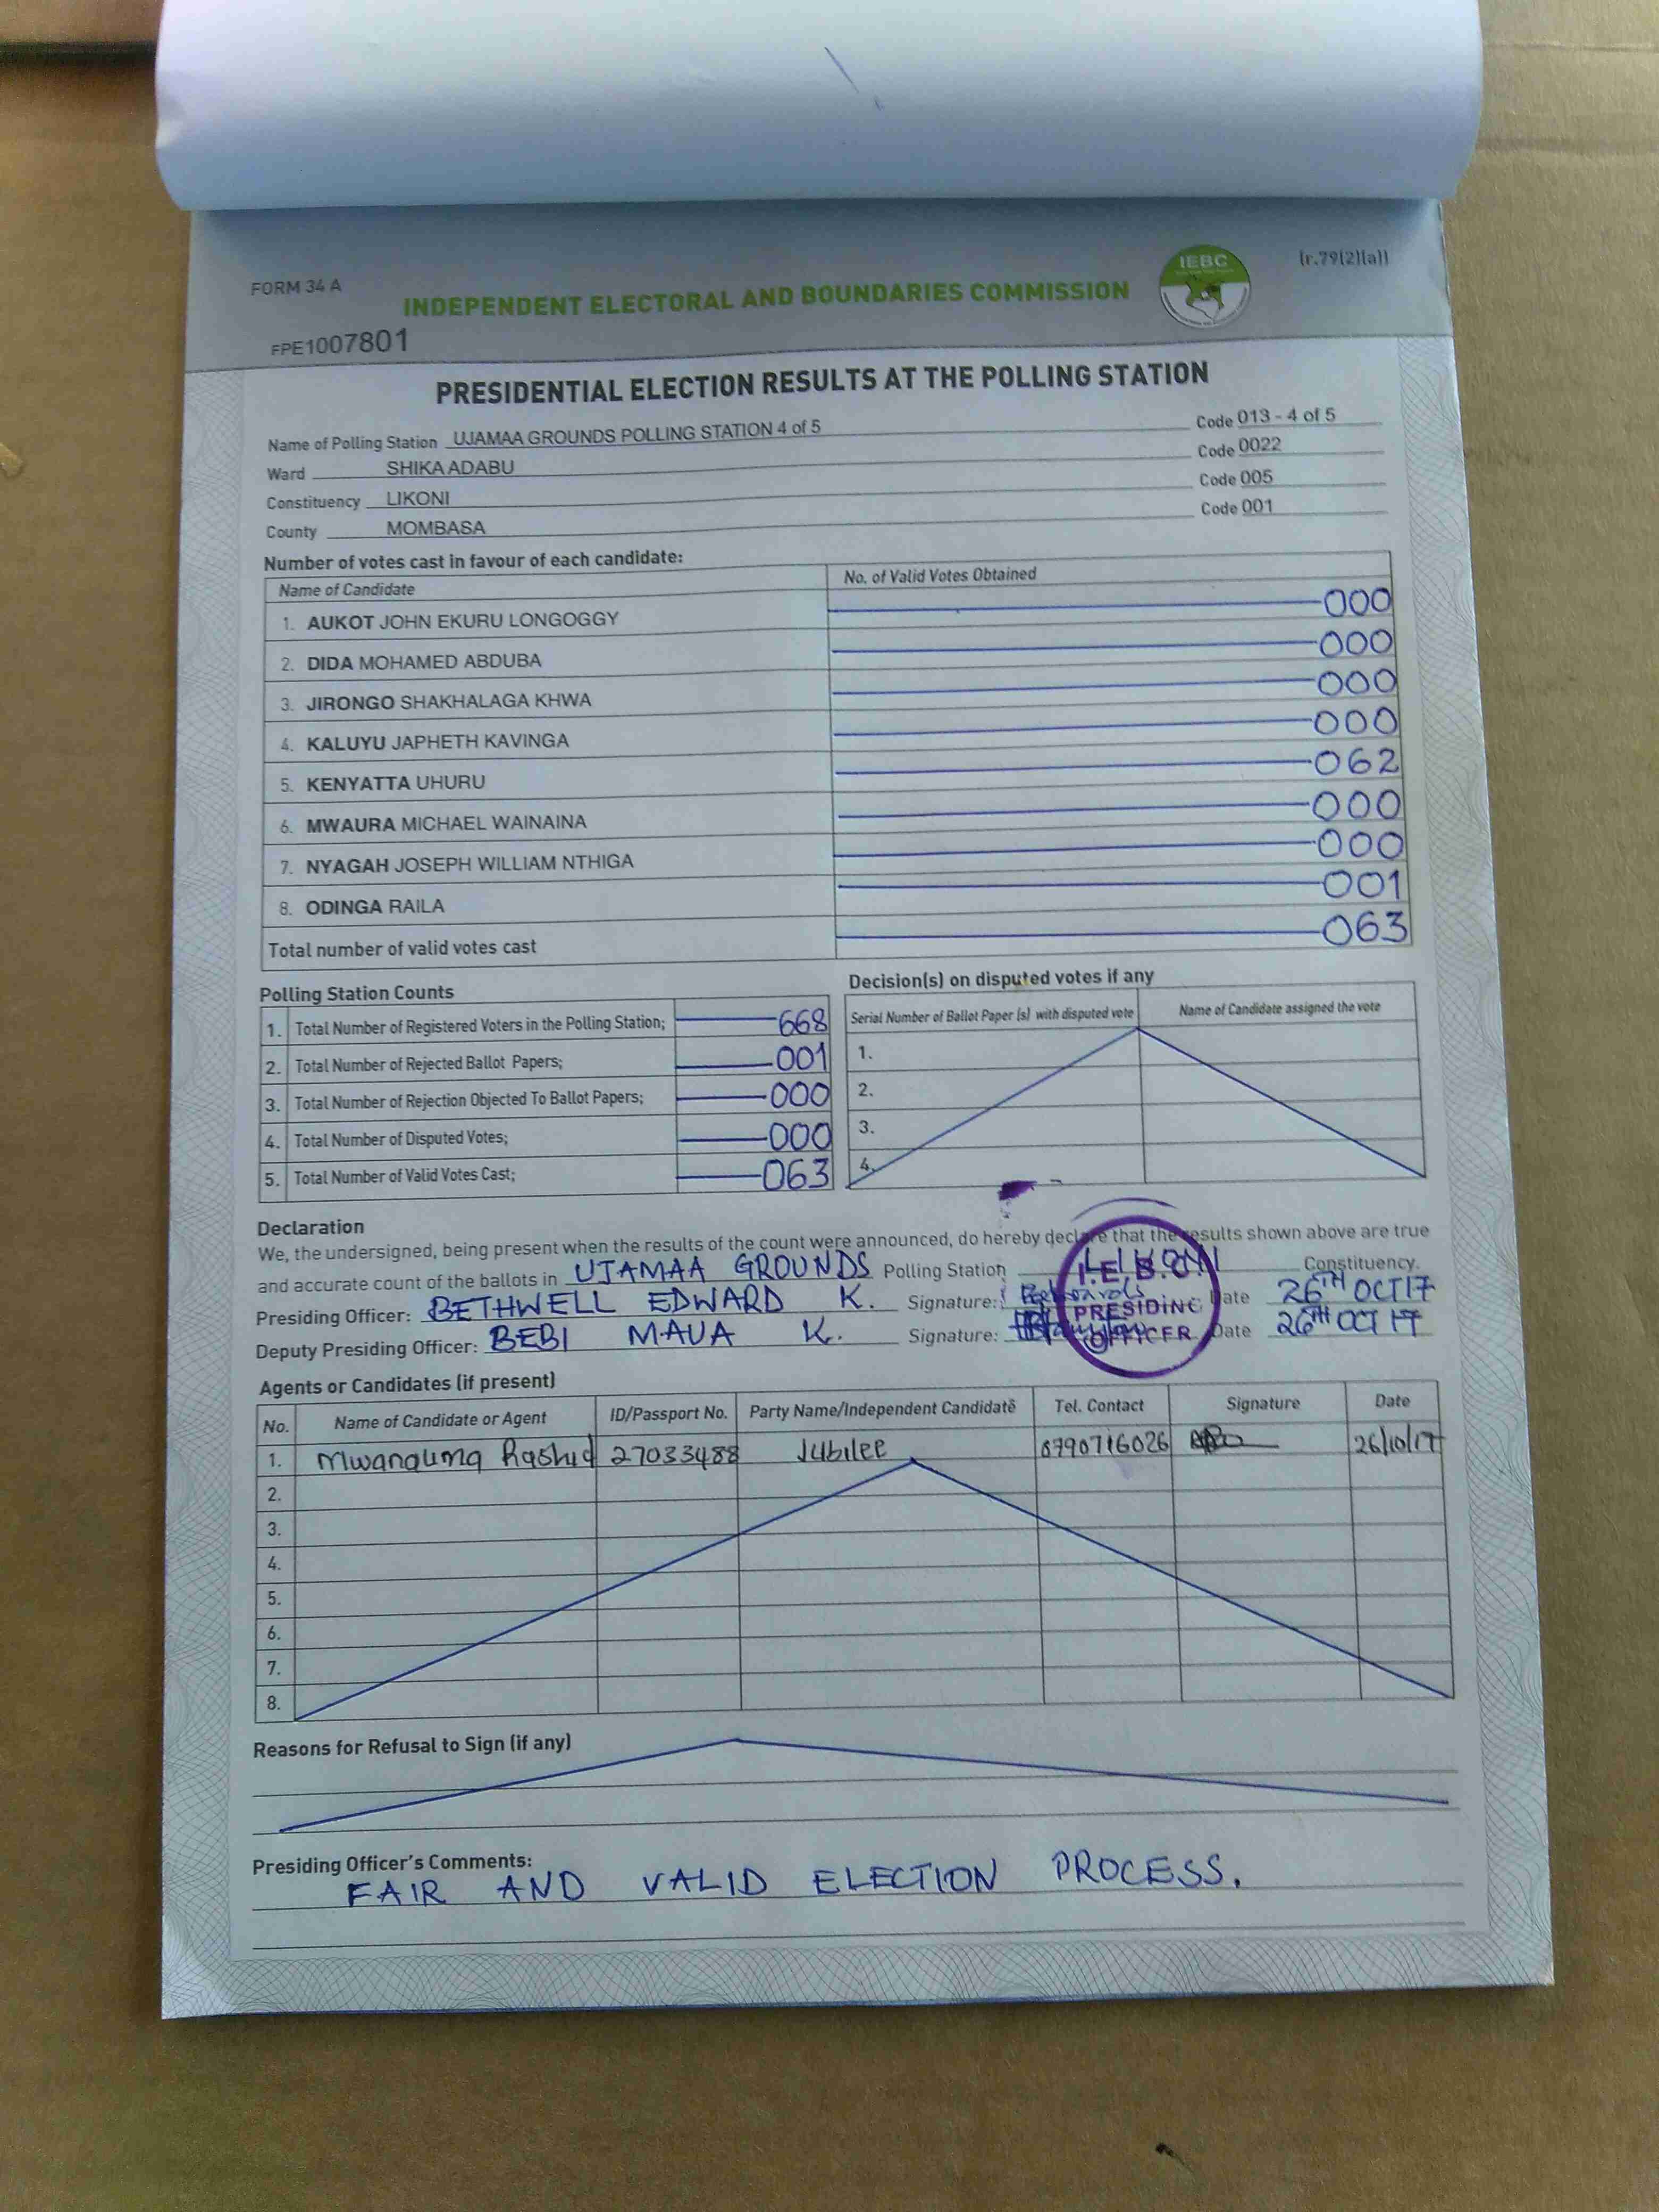 FORM 34 A
INDEPENDENT ELECTORAL AND BOUNDARIES COMMISSION
IEBC
(r.79(2)(a))
FPE1007801
PRESIDENTIAL ELECTION RESULTS AT THE POLLING STATION
Name of Polling Station UJAMAA GROUNDS POLLING STATION 4 of 5 Code 013 - 4 of 5
Ward SHIKA ADABU Code 0022
Constituency LIKONI Code 005
County MOMBASA Code 001
Number of votes cast in favour of each candidate:
Name of Candidate No. of Valid Votes Obtained
1. AUKOT JOHN EKURU LONGOGGY 000
2. DIDA MOHAMED ABDUBA 000
3. JIRONGO SHAKHALAGA KHWA 000
4. KALUYU JAPHETH KAVINGA 000
5. KENYATTA UHURU 062
6. MWAURA MICHAEL WAINAINA 000
7. NYAGAH JOSEPH WILLIAM NTHIGA 000
8. ODINGA RAILA 001
Total number of valid votes cast 063
Polling Station Counts
1. Total Number of Registered Voters in the Polling Station; 668
2. Total Number of Rejected Ballot Papers; 001
3. Total Number of Rejection Objected To Ballot Papers; 000
4. Total Number of Disputed Votes; 000
5. Total Number of Valid Votes Cast; 063
Decision(s) on disputed votes if any
Serial Number of Ballot Paper (s) with disputed vote Name of Candidate assigned the vote
1.
2.
3.
4.
Declaration
We, the undersigned, being present when the results of the count were announced, do hereby declare that the results shown above are true
and accurate count of the ballots in UJAMAA GROUNDS Polling Station LIKONI Constituency.
Presiding Officer: BETHWELL EDWARD K. Signature: Date 26TH OCT 17
Deputy Presiding Officer: BEBI MAUA K. Signature: Date 26TH OCT 17
I.E.B.C.
PRESIDING
OFFICER
Agents or Candidates (if present)
No. Name of Candidate or Agent ID/Passport No. Party Name/Independent Candidate Tel. Contact Signature Date
1. Mwanauma Rashid 27033488 Jubilee 0790716026 26/10/17
2.
3.
4.
5.
6.
7.
8.
Reasons for Refusal to Sign (if any)
Presiding Officer's Comments:
FAIR AND VALID ELECTION PROCESS.